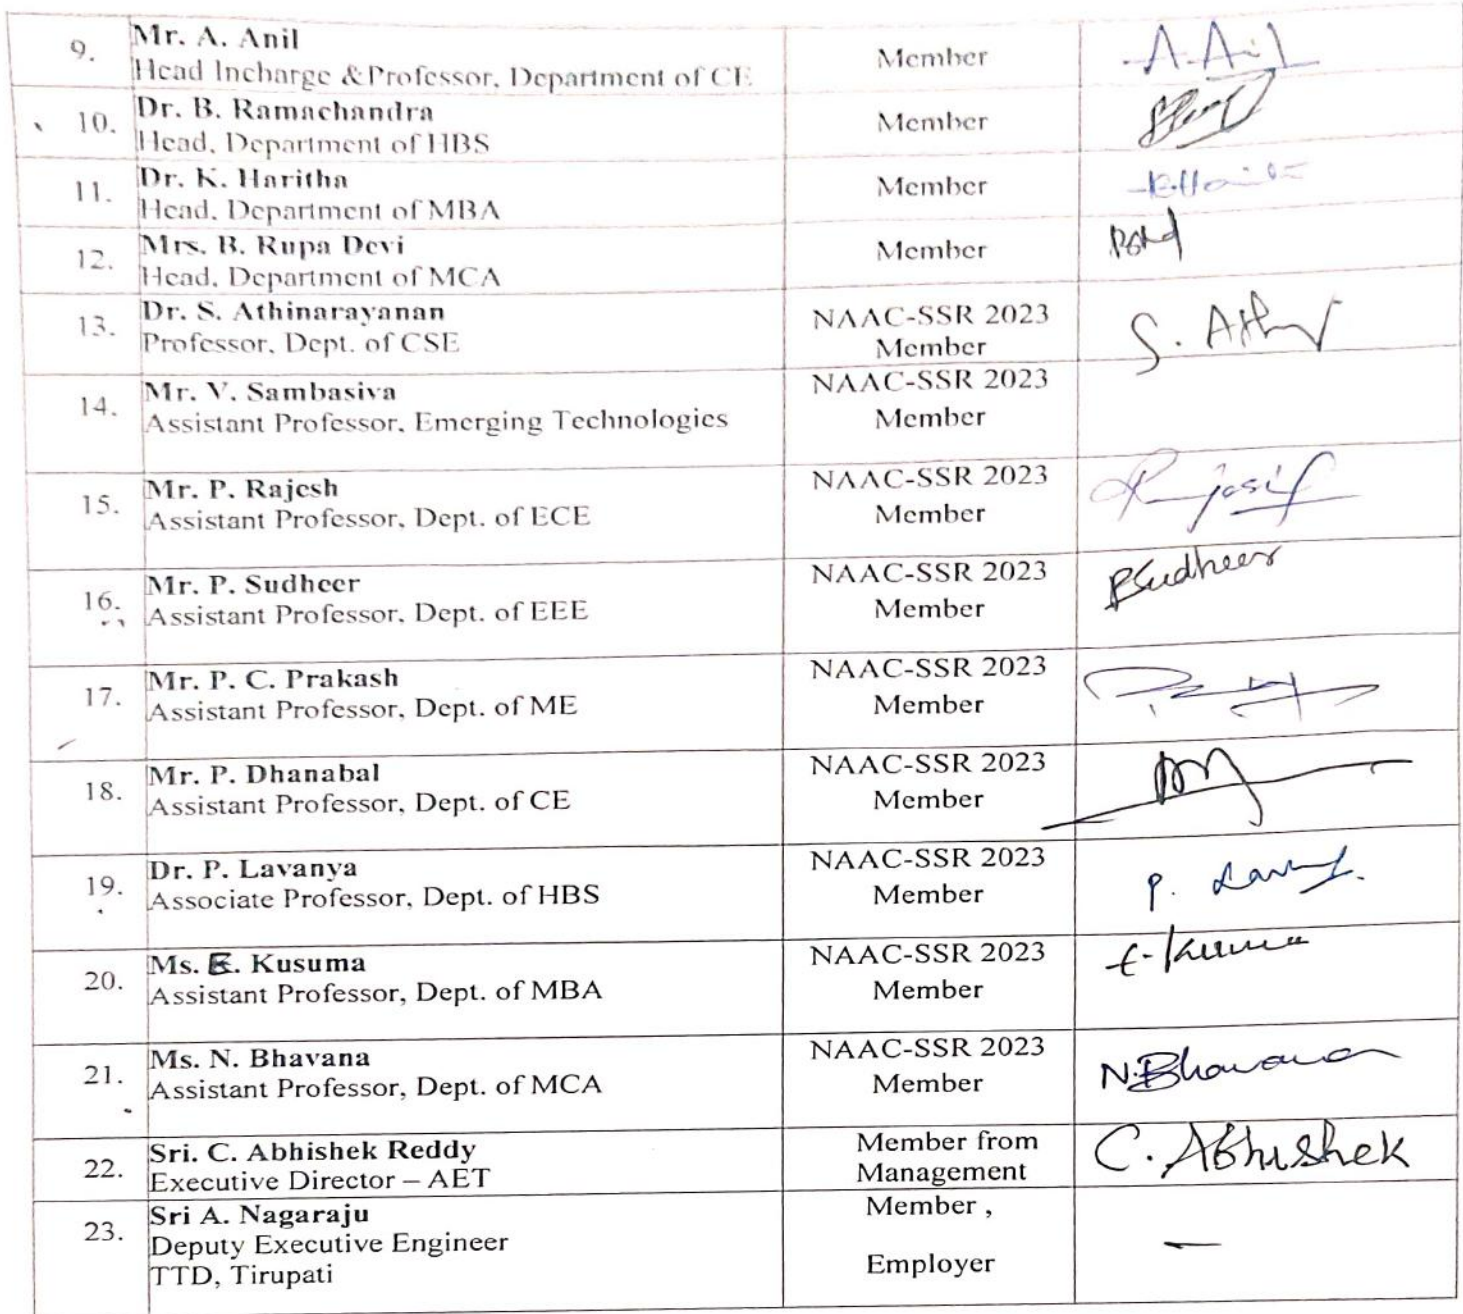 9. Mr. A. Anil
Head Incharge &Professor, Department of CE
Member
A.Anil
10. Dr. B. Ramachandra
Head, Department of HBS
Member
11. Dr. K. Haritha
Head, Department of MBA
Member
12. Mrs. B. Rupa Devi
Head, Department of MCA
Member
13. Dr. S. Athinarayanan
Professor, Dept. of CSE
NAAC-SSR 2023
Member
14. Mr. V. Sambasiva
Assistant Professor, Emerging Technologies
NAAC-SSR 2023
Member
15. Mr. P. Rajesh
Assistant Professor, Dept. of ECE
NAAC-SSR 2023
Member
16. Mr. P. Sudheer
Assistant Professor, Dept. of EEE
NAAC-SSR 2023
Member
P Sudheer
17. Mr. P. C. Prakash
Assistant Professor, Dept. of ME
NAAC-SSR 2023
Member
18. Mr. P. Dhanabal
Assistant Professor, Dept. of CE
NAAC-SSR 2023
Member
19. Dr. P. Lavanya
Associate Professor, Dept. of HBS
NAAC-SSR 2023
Member
20. Ms. E. Kusuma
Assistant Professor, Dept. of MBA
NAAC-SSR 2023
Member
21. Ms. N. Bhavana
Assistant Professor, Dept. of MCA
NAAC-SSR 2023
Member
N.Bhavana
22. Sri. C. Abhishek Reddy
Executive Director – AET
Member from
Management
C. Abhishek
23. Sri A. Nagaraju
Deputy Executive Engineer
TTD, Tirupati
Member ,
Employer
—